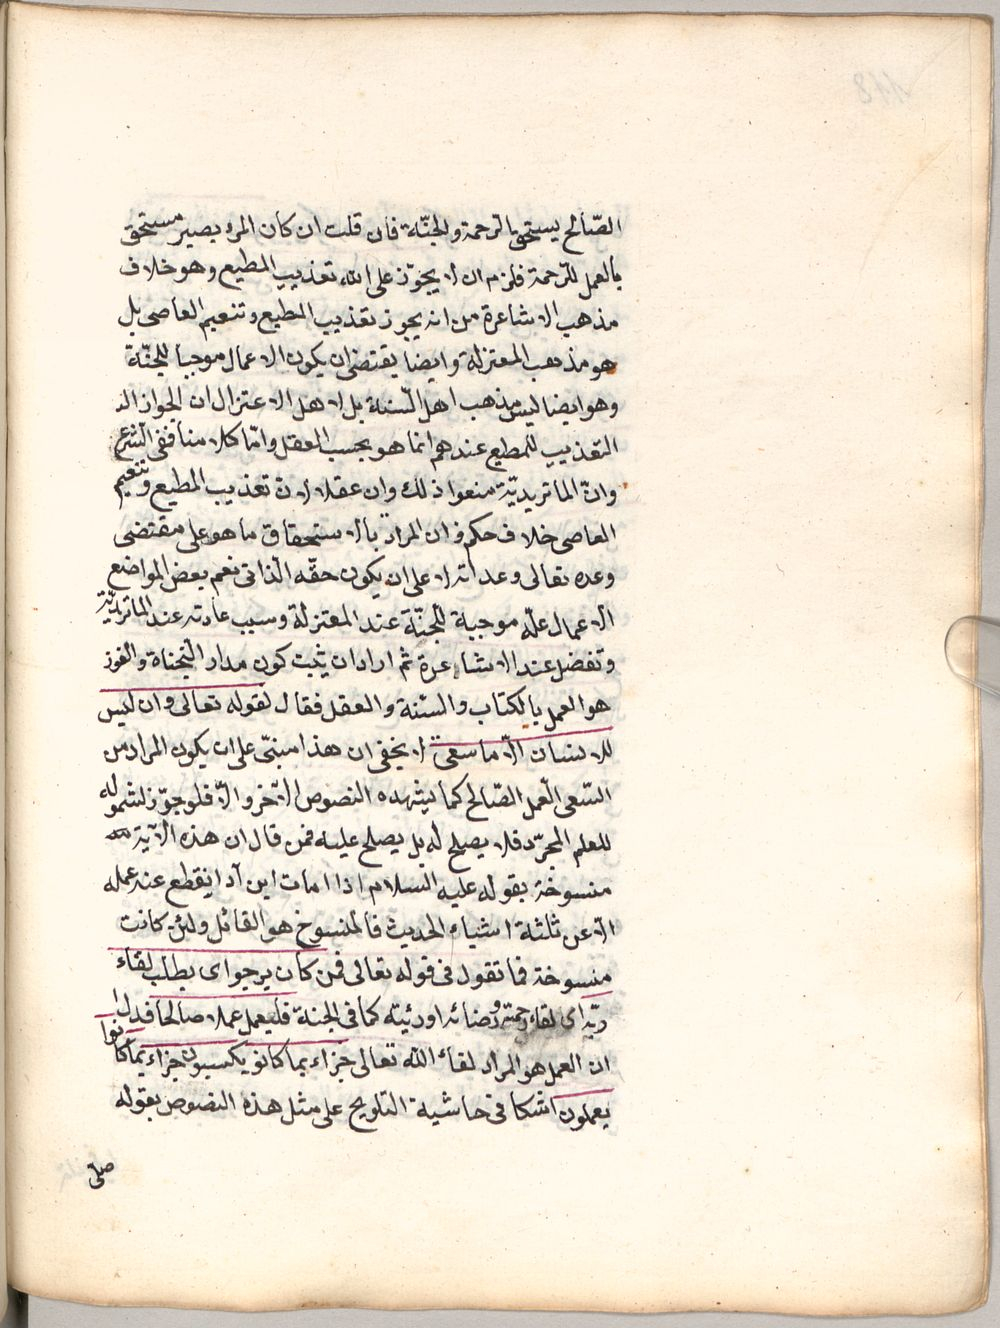 الصّالح يستحق بالرحمة والجنّة فان قلت ان كان المرء يصير مستحق
بالعمل للرّحمة فلزم ان لا يجوّز على الله تعذيب المطيع وهو خلاف
مذهب الاشاعرة من انه يجوز تعذيب المطيع وتنعيم العاصى بل
هو مذهب المعتزلة وايضا يقتضى ان يكون الاعمال موجبا للجنّة
وهو ايضا ليس مذهب اهل السّنة بل لاهل الاعتزال ان الجواز الـ
التعذيب للمطيع عندهم انما هو بحسب العقل وامّا كلا منا ففى الشرع
وانّ الماتريديّة منعوا ذلك وان عقلا لانّ تعذيب المطيع وتنعيم
العاصى خلاف حكم فان المراد بالاستحقاق ما هو على مقتضى
وعده تعالى وعداته لا على ان يكون حقّه الذّاتى نعم بعض المواضع
الاعمال علّة موجبة للجنّة عند المعتزلة وسبب عادته عند الماتريديّة
وتفضل عند الاشاعرة ثم اراد ان يثبت كون مدار النّجناة والفوز
هو العمل بالكتاب والسّنة والعقل فقال لقوله تعالى وان ليس
للانسان الاّ ما سعى لا يخفى ان هذا مبنىّ على ان يكون المراد من
السّعى العمل الصّالح كما يشهده النصوص الاخر والاّ فلو جوّز لشموله
للعلم المجرّد فلا يصلح له بل يصلح عليه فمن قال ان هذه الآية
منسوخة بقوله عليه السلام اذا مات ابن آدا ينقطع عنه عمله
الاّ عن ثلثة اشياء الحديث فالمنسوخ هو القائل ولئن كانت
منسوخة فما تقول فى قوله تعالى فمن كان يرجو اى يطلب لقاء
ربّه اى لقاء رحمته ورضائه او رئيته كما فى الجنة فليعمل عملا صالحا فدل
ان العمل هو المراد لقاء الله تعالى جزاء بما كانو يكسبون جزاء بما كانوا
يعملون اشكا فى حاشية التلويح على مثل هذه النصوص بقوله
صلى